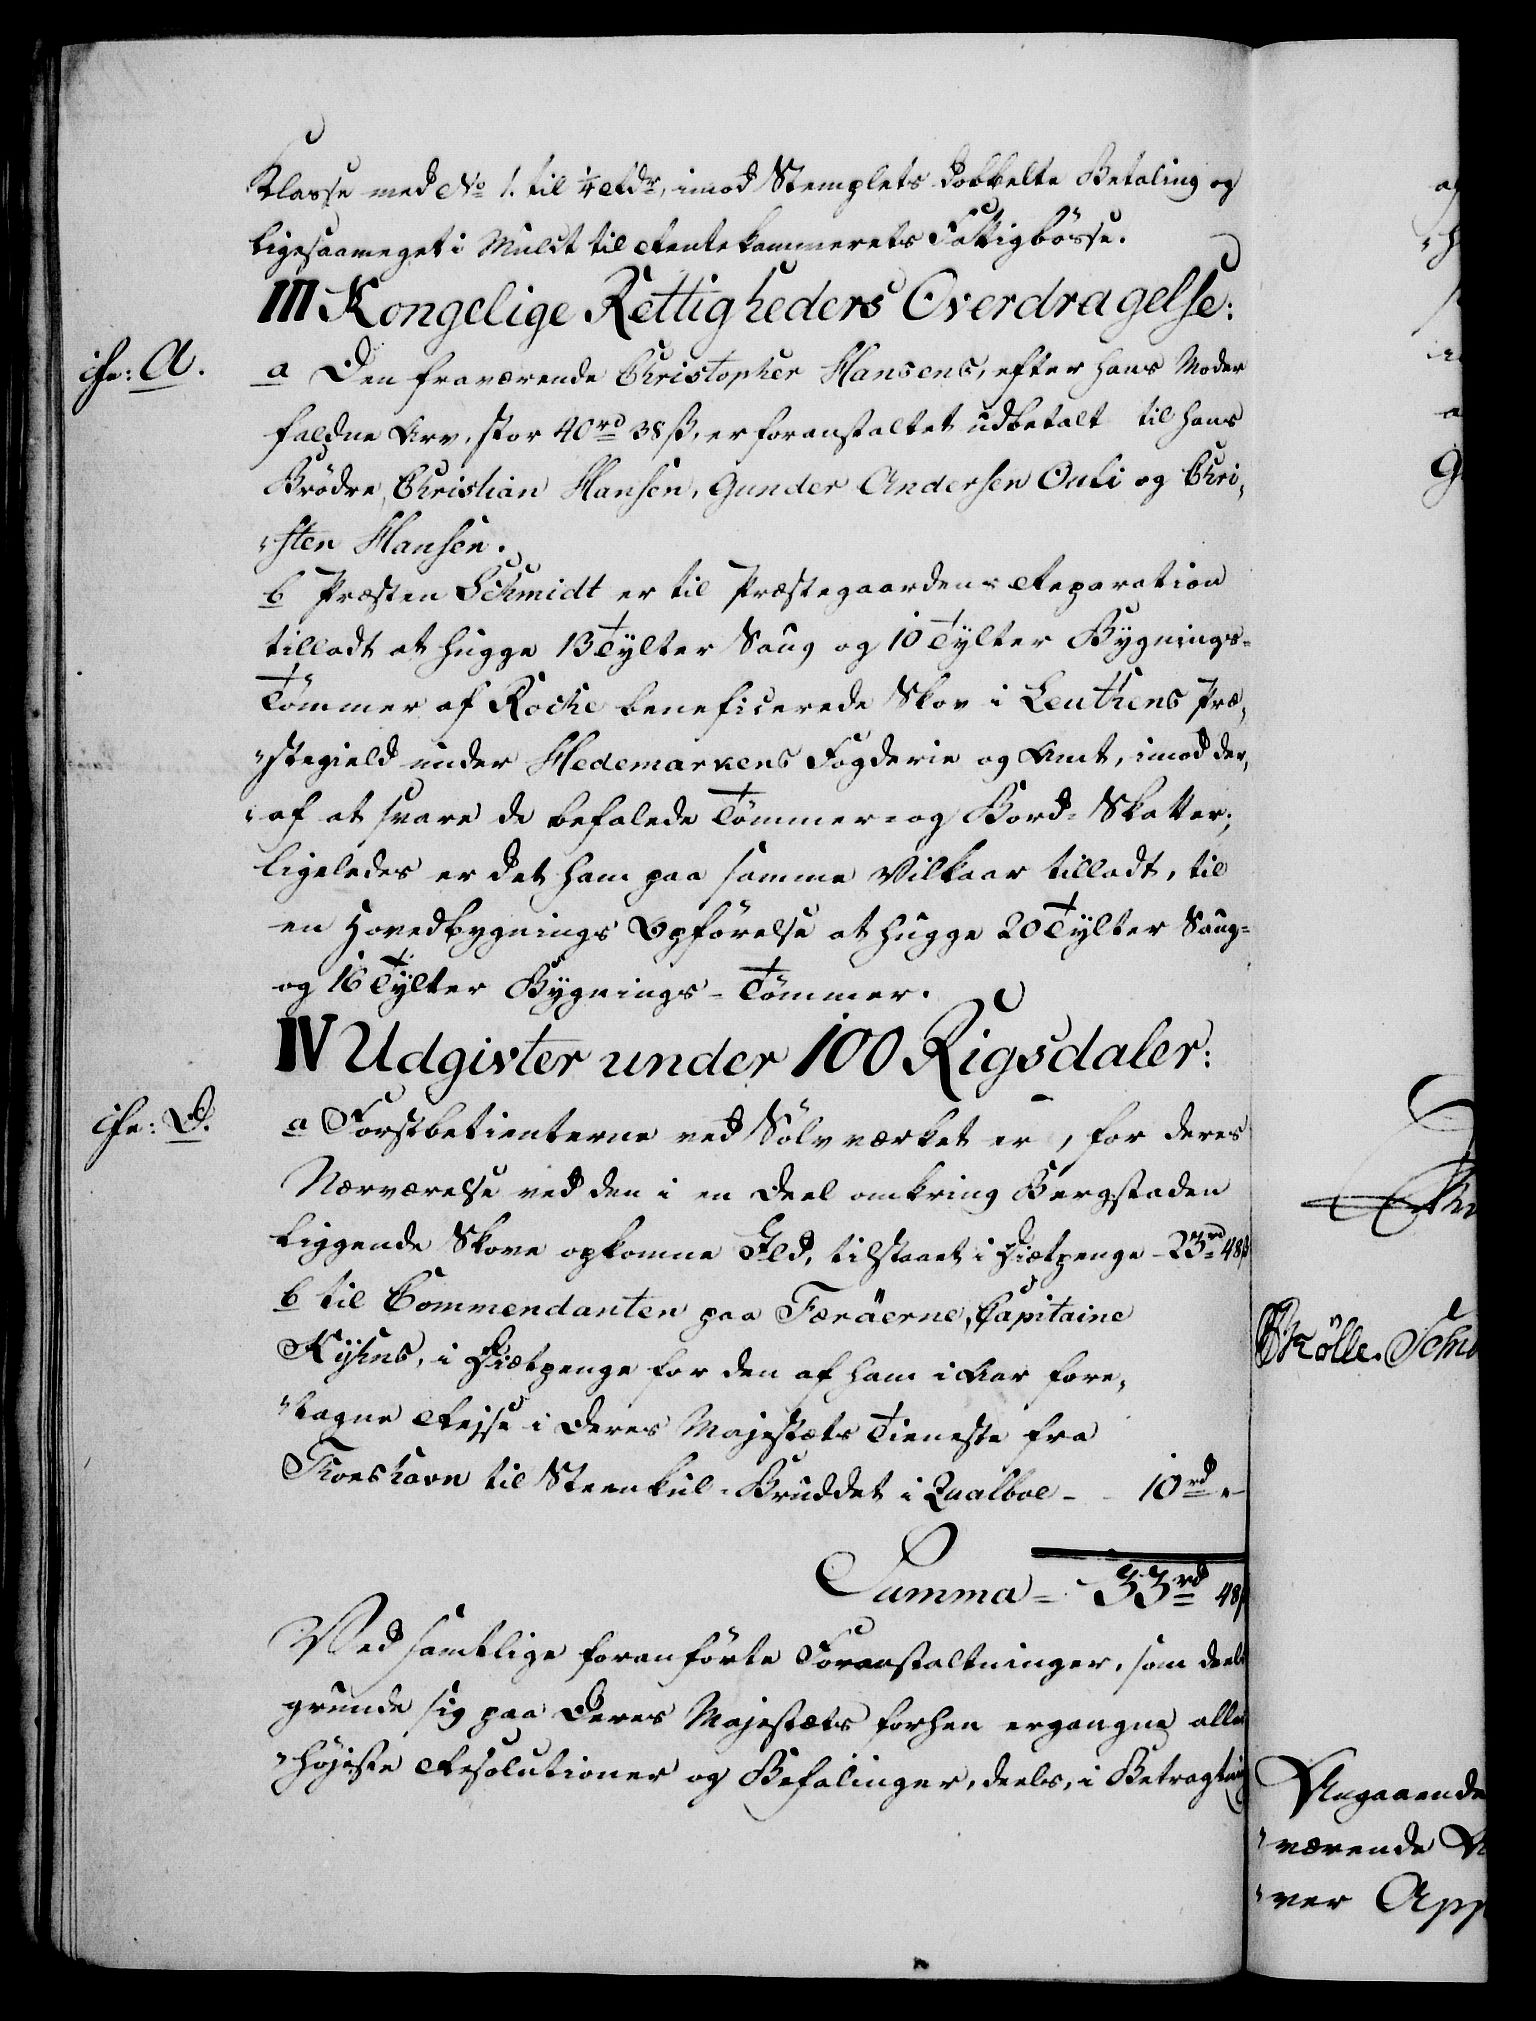 Klasse med No 1. til ¼ Rdr, imod Stemplets dobbelte Betaling og
ligesaameget i Mulct til Rentekammerets Fattigbösse.
III Kongelige Rettigheders Overdragelse:
a Den fraværende Christopher Hansens, efter hans Moder
faldne Arv, stor 40 rd 38 ß, er foranstaltet udbetalt til hans
Brödre, Christian Hansen, Gunder Andersen Outi og Chri„
„sten Hansen.
b Præsten Schmidt er til Præstegaardens Reparation
tilladt at hugge 13 Tylter Saug og 10 Tylter Bygnings-
Tömmer af Rocke beneficerede Skov i Leuthens Præ„
„stegield under Hedemarkens Fogderie og Amt, imod der„
„af at svare de befalede Tömmer- og Bord-Skatter;
ligeledes er det ham paa samme Vilkaar tilladt, til
en Hovedbygnings Opförelse at hugge 20 Tylter Saug-
og 16 Tylter Bygnings-Tömmer.
IV Udgivter under 100 Rigsdaler:
a Forstbetienterne ved Sölvværket er, for deres
Nærværelse ved den i en Deel omkring Bergstaden
liggende Skove opkomne Ild, tilstaaet i Diætpenge - 23 rd 48 ß
b til Commendanten paa Færöerne, Capitaine
Kyhns, i Diætpenge for den af ham i Aar fore„
„tagne Rejse i Deres Majestæts Tieneste fra
Thorshavn til Steenkul-Bruddet i Qualboe - - 10 rd „-
Summa = 33 rd 48 ß
Ved samtlige foranförte Foranstaltninger, som deels
grunde sig paa Deres Majestæts forhen ergangne aller
„höjeste Resolutioner og Befalinger, deels, i Betragtning
A.
D.
Kölle. Schm
Angaaende
„værende
„ver App